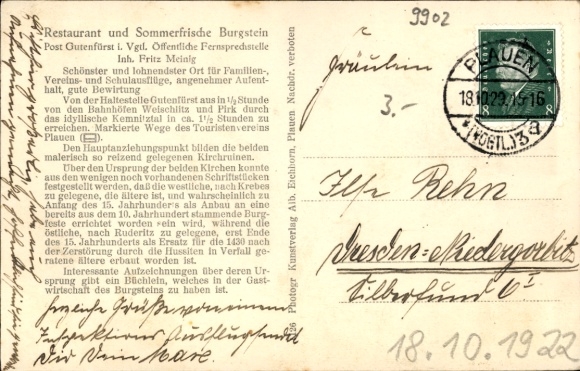 9902
Restaurant und Sommerfrische Burgstein
Post Gutenfürst i. Vgtl. Öffentliche Fernsprechstelle
Inh. Fritz Meinig
Schönster und lohnendster Ort für Familien-,
Vereins- und Schulausflüge, angenehmer Aufent-
halt, gute Bewirtung
Von der Haltestelle Gutenfürst aus in 1/2 Stunde
von den Bahnhöfen Weischlitz und Pirk durch
das idyllische Kemnitztal in ca. 1 1/2 Stunden zu
erreichen. Markierte Wege des Touristenvereins
Plauen
Den Hauptanziehungspunkt bilden die beiden
malerisch so reizend gelegenen Kirchruinen.
Über den Ursprung der beiden Kirchen konnte
aus den wenigen noch vorhandenen Schriftstücken
festgestellt werden, daß die westliche, nach Krebes
zu gelegene, die ältere ist, und wahrscheinlich zu
Anfang des 15. Jahrhunderts als Anbau an eine
bereits aus dem 10. Jahrhundert stammende Burg-
feste errichtet worden sein wird, während die
östliche, nach Ruderitz zu gelegene, erst Ende
des 15. Jahrhunderts als Ersatz für die 1430 nach
der Zerstörung durch die Hussiten in Verfall ge-
ratene älteren erbaut worden ist.
Interessante Aufzeichnungen über deren Ur-
sprung gibt ein Büchlein, welches in der Gast-
wirtschaft des Burgsteins zu haben ist.
herzliche Grüße von einem
Inspektions Ausflug sendet
Dir Dein Max.
126 Photogr Kunstverlag Alb. Eichhorn, Plauen Nachdr. verboten
PLAUEN
18.10.29.15-16
(VOGTL.) 3
8
Fräulein
3.-
Ilse Rehn
Dresden=Niedergorbitz
Silberfund 6 I
18.10.1922